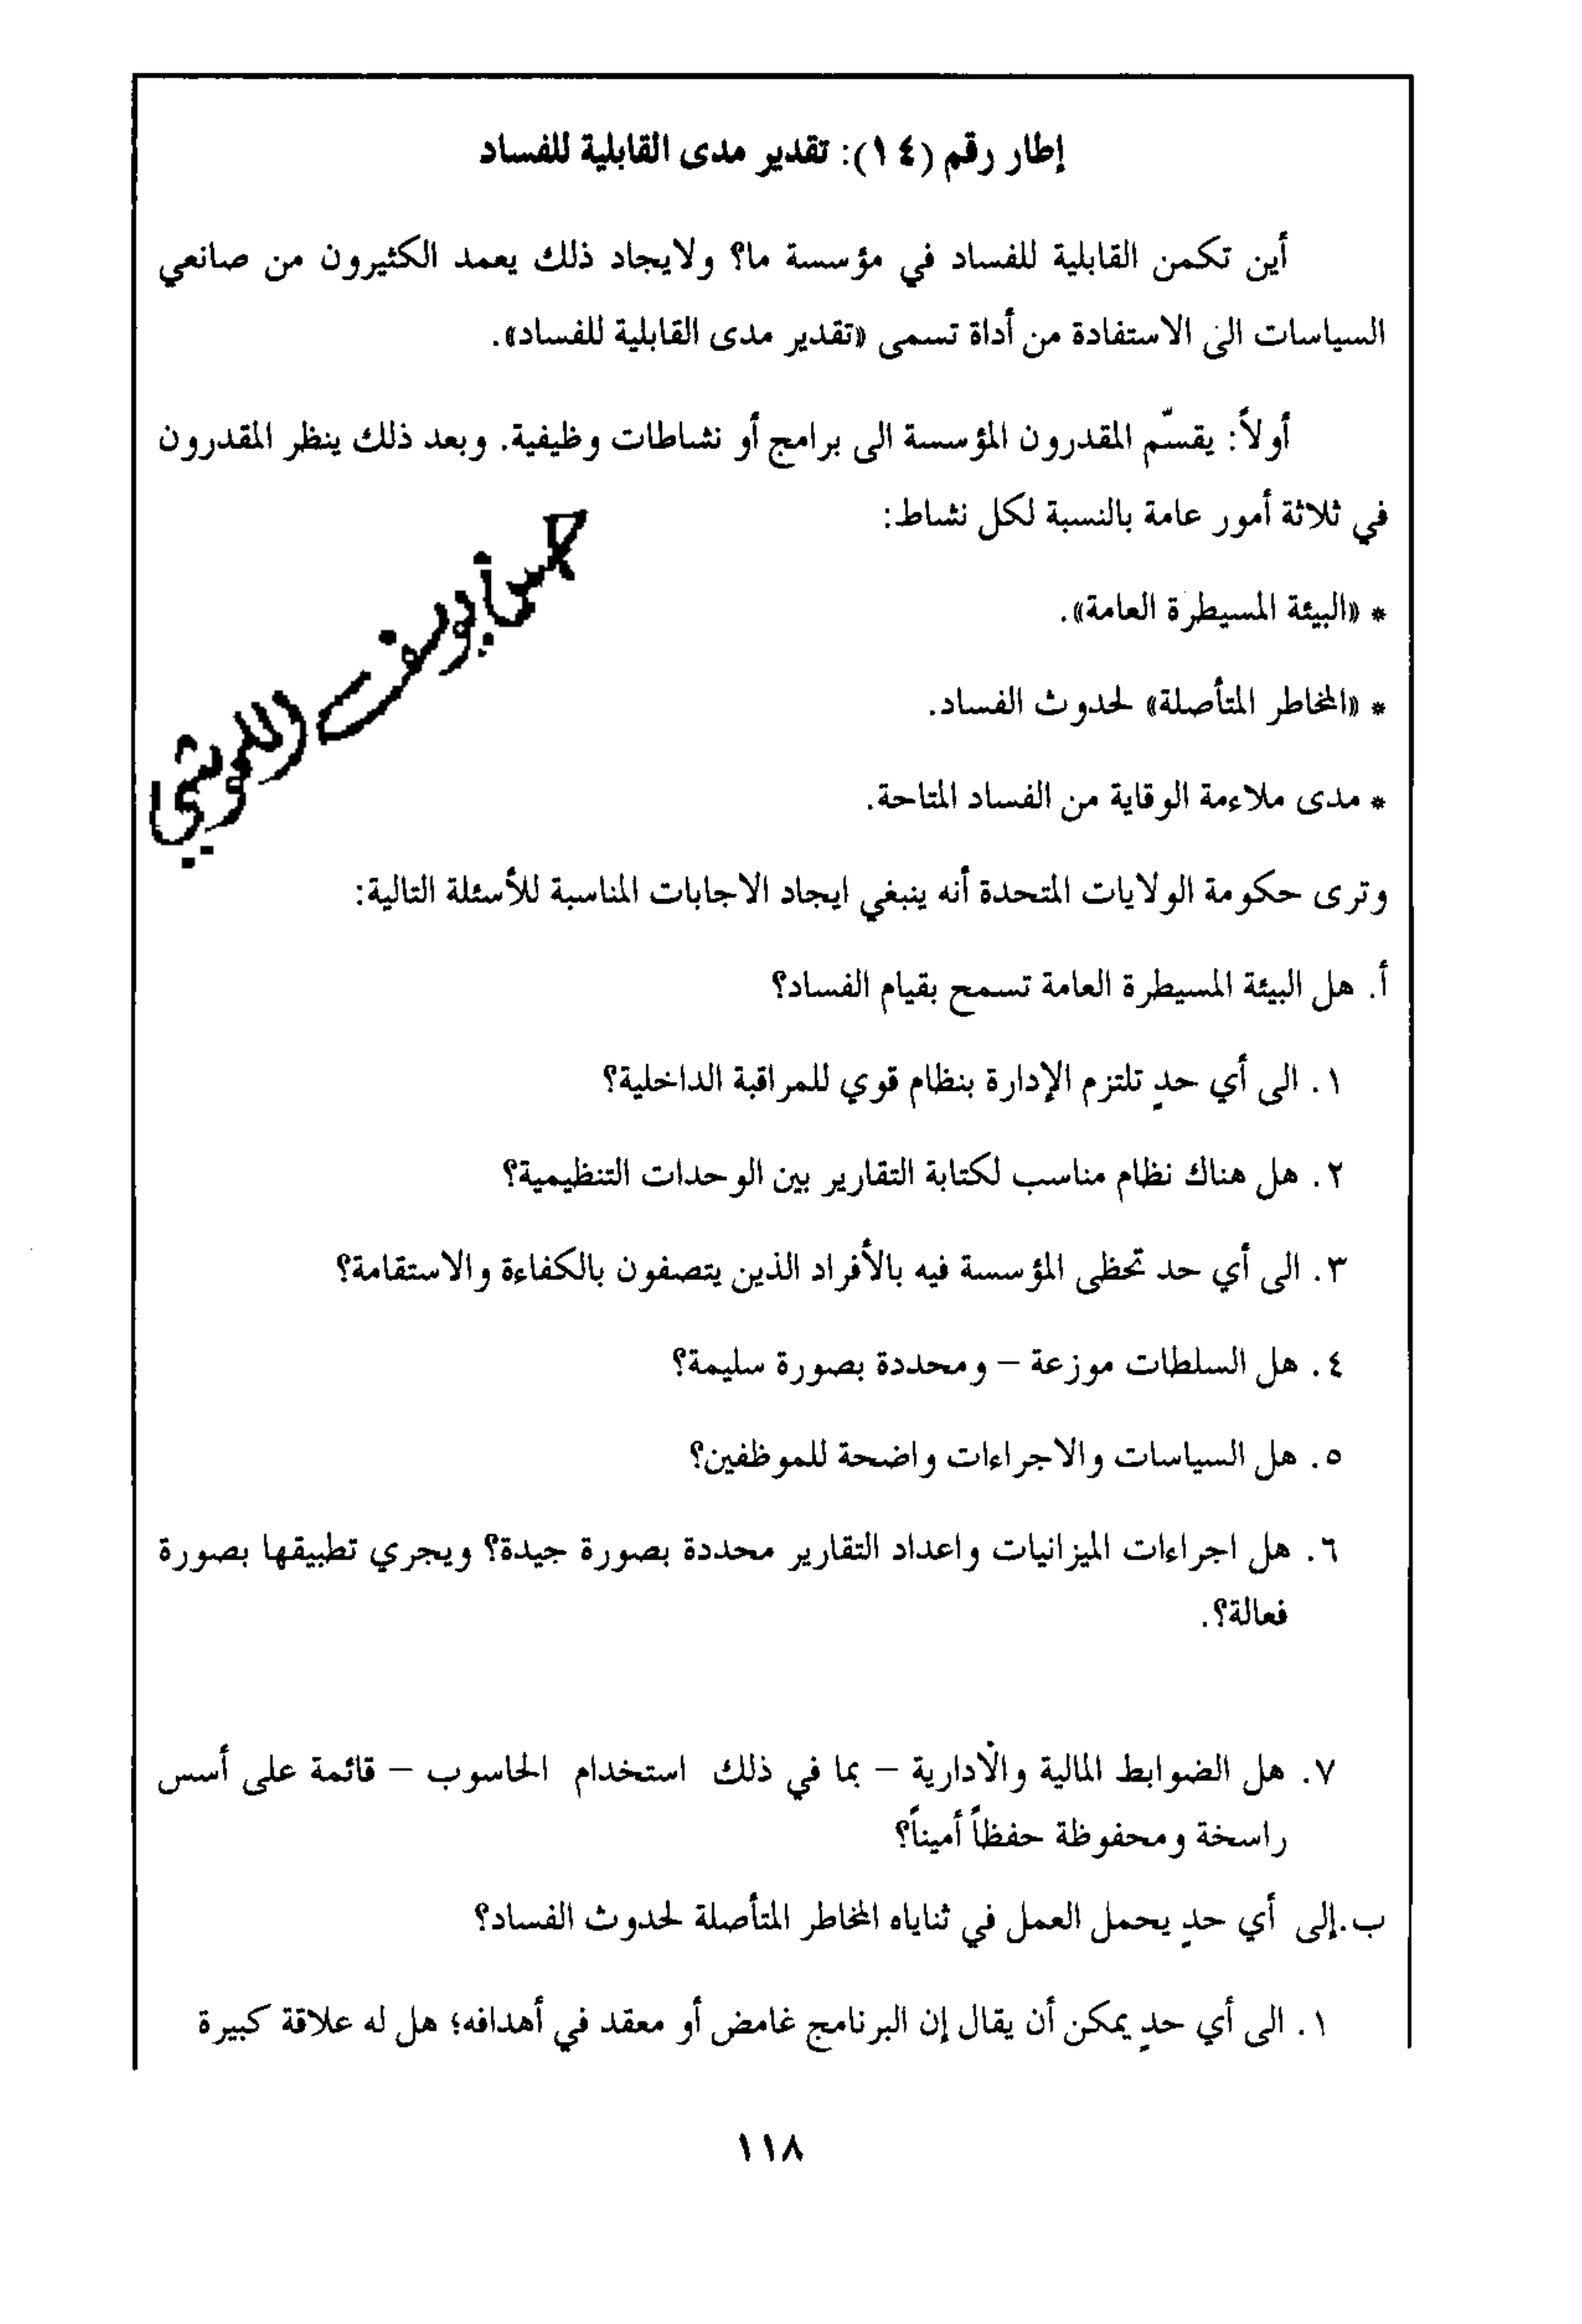 إطار رقم (١٤): تقدير مدى القابلية للفساد
أين تكمن القابلية للفساد في مؤسسة ما؟ ولايجاد ذلك يعمد الكثيرون من صانعي
السياسات الى الاستفادة من أداة تسمى «تقدير مدى القابلية للفساد».
أولاً: يقسّم المقدرون المؤسسة الى برامج أو نشاطات وظيفية. وبعد ذلك ينظر المقدرون
في ثلاثة أمور عامة بالنسبة لكل نشاط:
* «البيئة المسيطرة العامة».
* «المخاطر المتأصلة» لحدوث الفساد.
* مدى ملاءمة الوقاية من الفساد المتاحة.
وترى حكومة الولايات المتحدة أنه ينبغي ايجاد الاجابات المناسبة للأسئلة التالية:
أ. هل البيئة المسيطرة العامة تسمح بقيام الفساد؟
١. الى أي حدٍ تلتزم الإدارة بنظام قوي للمراقبة الداخلية؟
٢. هل هناك نظام مناسب لكتابة التقارير بين الوحدات التنظيمية؟
٣. الى أي حد تحظى المؤسسة فيه بالأفراد الذين يتصفون بالكفاءة والاستقامة؟
٤. هل السلطات موزعة – ومحددة بصورة سليمة؟
٥. هل السياسات والاجراءات واضحة للموظفين؟
٦. هل اجراءات الميزانيات واعداد التقارير محددة بصورة جيدة؟ ويجري تطبيقها بصورة
فعالة؟.
٧. هل الضوابط المالية والأدارية – بما في ذلك استخدام الحاسوب – قائمة على أسس
راسخة ومحفوظة حفظاً أميناً؟
ب.إلى أي حدٍ يحمل العمل في ثناياه المخاطر المتأصلة لحدوث الفساد؟
١. الى أي حدٍ يمكن أن يقال إن البرنامج غامض أو معقد في أهدافه؛ هل له علاقة كبيرة
١١٨